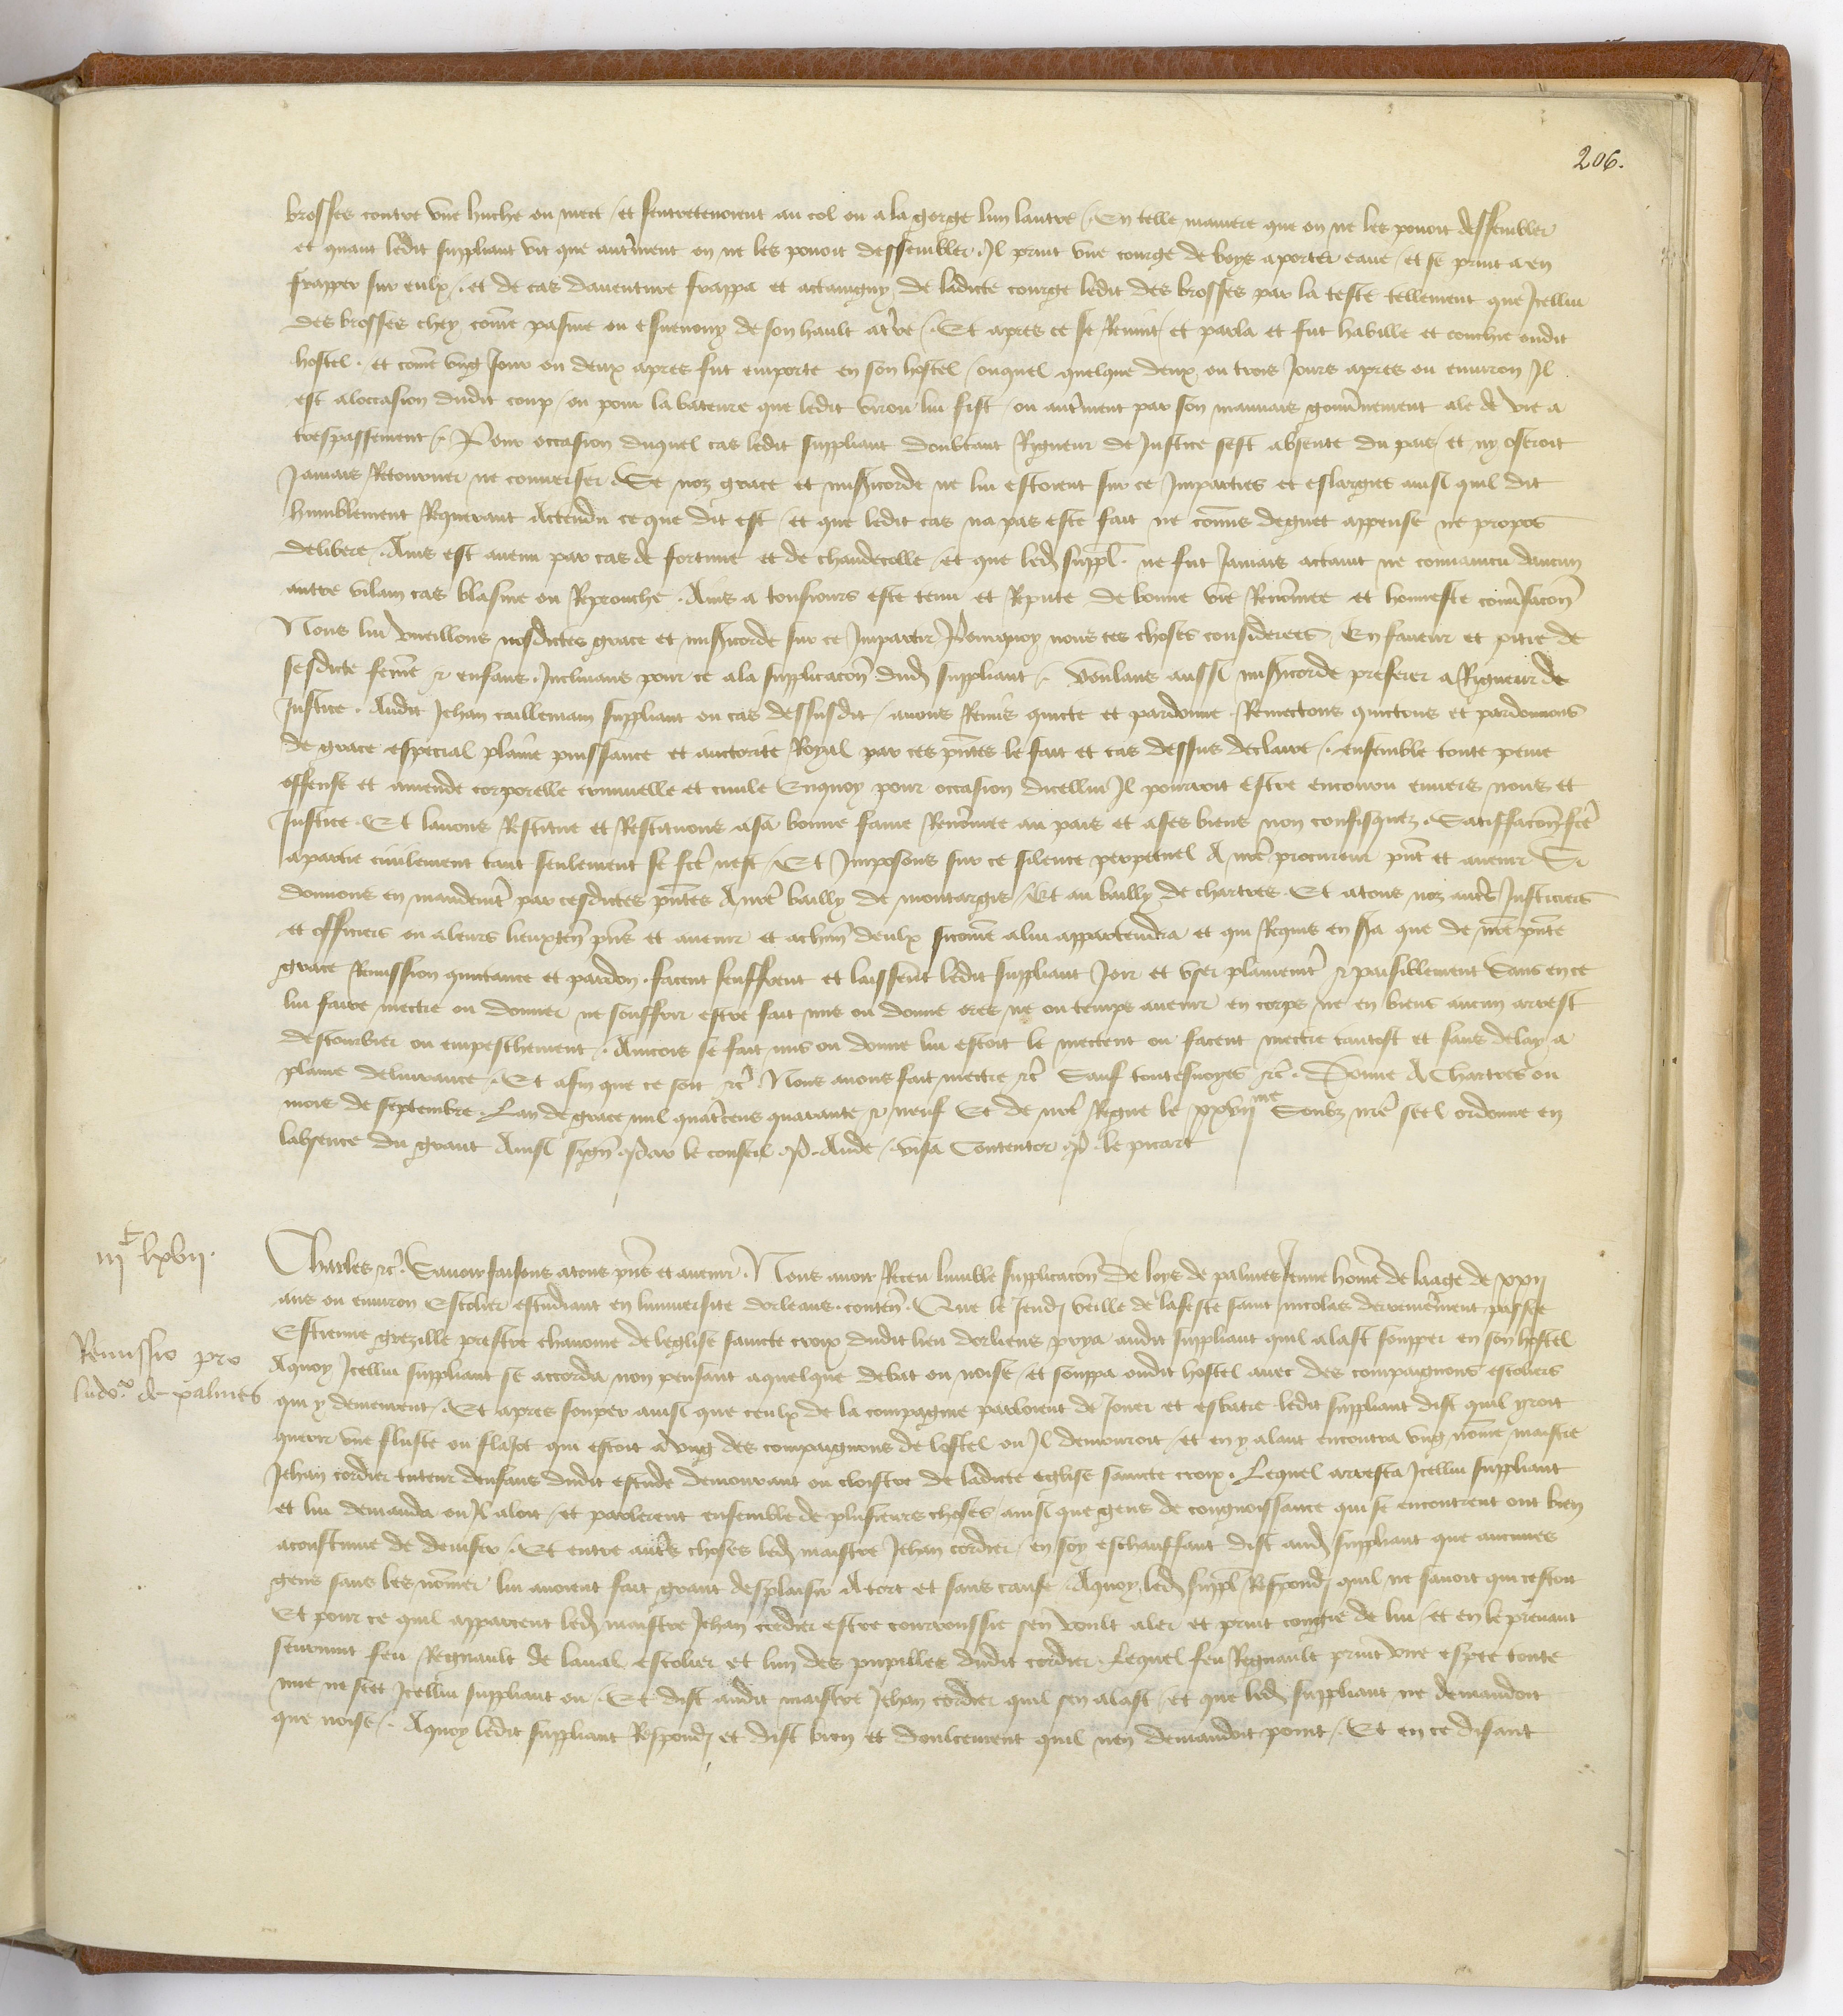 206.
brosses contre une huche ou mect / et sentretenoient au col ou a la gorge lun lautre / En telle maniere que on ne les povoit dessembler
et quant ledit suppliant vit que autrement on ne les povoit dessembler . Il print une courge de boys a porter eaue / et se print a en
frapper sur eulx / . et de cas daventure frappa et actaingny de ladicte courge ledit des brosses par la teste tellement que Icellui
des brosses chey come pasme ou esvenouy de son hault a tre / . Et apres ce se Revint / et parla et fut habille et couchie oudit
hostel . et come ung Jour ou deux apres fut emporte en son hostel / ouquel quelque deux ou trois Jours apres ou environ Il
est a loccasion dudit coup / ou pour la bateure que ledit viron lui fist / ou autrement par son mauvais gouvnement ale de vie a
trespassement / . Pour occasion duquel cas ledit suppliant doubtant Rigueur de Justice sest absente du pais / et ny oseroit
Jamais Retourner ne converser . Se noz grace et misicorde ne lui estoient sur ce Imparties et eslargies ainsi quil dit
humblement Requerant Actendu ce que dit est / et que ledit cas na pas este fait ne comis deguet appense ne propos
delibere / . Ains est avenu par cas de fortune et de chaudecolle / et que led suppl . ne fut Jamais actaint ne convaincu daucun
autre vilain cas blasme ou Reprouche . Ains a tousjours este tenu et Repute de bonne vie Renomee et honneste conversacon
Nous lui vueillons nosdictes grace et misicorde sur ce Impartir Pourquoy nous ces choses considerees . En faveur et pitie de
sesdicte feme & enfans . Inclinans pour ce a la supplicacon dud suppliant / . voulans aussi misicorde preferer a Rigueur de
Justice . Audit Jehan caillemain suppliant ou cas dessusdit / avons Remis quicte et pardonne . Remectons quictons et pardonnons
de grace especial plaine puissance et auctorite Royal par ces pntes le fait et cas dessus declaire / . ensemble toute peine
offense et amende corporelle criminelle et civile En quoy pour occasion dicellui Il pourroit estre encouru envers nous et
Justice . Et lavons Restitue et Restituons a sa bonne fame Renomee au pais et a ses biens non confisquez . Satiffacon fce
a partie civilement tant seulement se fce nest / . Et Imposons sur ce silence perpetuel A nre procureur pnt et avenir Si
donnons en mandemt par cesdictes pntes A nre bailly de montargis / Et au bailly de chartres . Et a tous noz autres Justiciers
et officiers ou a leurs lieuxten pns et avenir et a chun deulx sicome a lui appartendra et qui Requis en sa que de nre pnte
grace Remission quictance et pardon . facent seuffrent et laissent ledit suppliant Joir et user plainemt & paisiblement Sans en ce
lui faire mectre ou donner ne souffrir estre fait mis ou donne ores ne ou temps avenir en corps ne en biens aucun arrest
destourbier ou empeschement . Aincois se fait mis ou donne lui estoit le mectent ou facent mectre tantost et sans delay a
plaine delivrance . Et afin que ce soit &c . Nous avons fait mectre &c Sauf toutesvoyes &c . Donne A Chartres ou
mois de septembre . Lan de grace mil quatrecens quarante & neuf Et de nre Regne le xxvii me Soubz nre seel ordonne en
labsence du grant Ainsi sign Par le conseil P . Aude / . visa Contentor P . le picart
iii c lxvii .
Charles &c . Savoir faisons a tous pns et avenir . Nous avoir Receu lumble supplicacon de loys de palmes Jeune home de laage de xxii
ans ou environ Escolier estudiant en luniversite dorleans . conten . Que le Jeudi veille de la feste saint nicolas derrenierement passee
Remissio pro
ludo.co de palmes
Estienne grezille prestre chanoine de leglise saincte croix dudit lieu dorliens prya audit suppliant quil alast soupper en son hostel
A quoy Icellui suppliant se accorda non pensant a quelque debat ou noise / et souppa oudit hostel avec des compaignons escoliers
qui y demeurent / . Et apres soupper ainsi que ceulx de la compagnie parloient de Jouer et esbatre ledit suppliant dist quil yroit
querir une fluste ou flajot qui estoit a ung des compaignons de lostel ou Il demouroit / et en y alant encontra ung nome maistre
Jehan cordier tuteur denfans dudit estude demourant ou cloistre de ladicte eglise saincte croix . Lequel arresta Icellui suppliant
et lui demanda ou Il aloit / et parlerent ensemble de plusieurs choses ainsi que gens de congnoissance qui se encontrent ont bien
acoustume de deviser . Et entre autres choses led maistre Jehan cordier en soy eschauffant dist aud suppliant que aucunes
gens sans les nomer lui avoient fait grant desplaisir A tort et sans cause . A quoy led suppl Respondi quil ne savoit qui cestoit
Et pour ce quil apparceut led maistre Jehan cordier estre courroussie sen voult aler et print congie de lui / et en le prenant
seurvint feu Regnault de laval escolier et lun des pupilles dudit cordier . Lequel feu Regnault print une espee toute
nue ne scet Icellui suppliant ou / . Et dist audit maistre Jehan cordier quil sen alast / et que led suppliant ne demandoit
que noise / . A quoy ledit suppliant Respondi et dist bien et doulcement quil nen demandoit point / . Et en ce disant